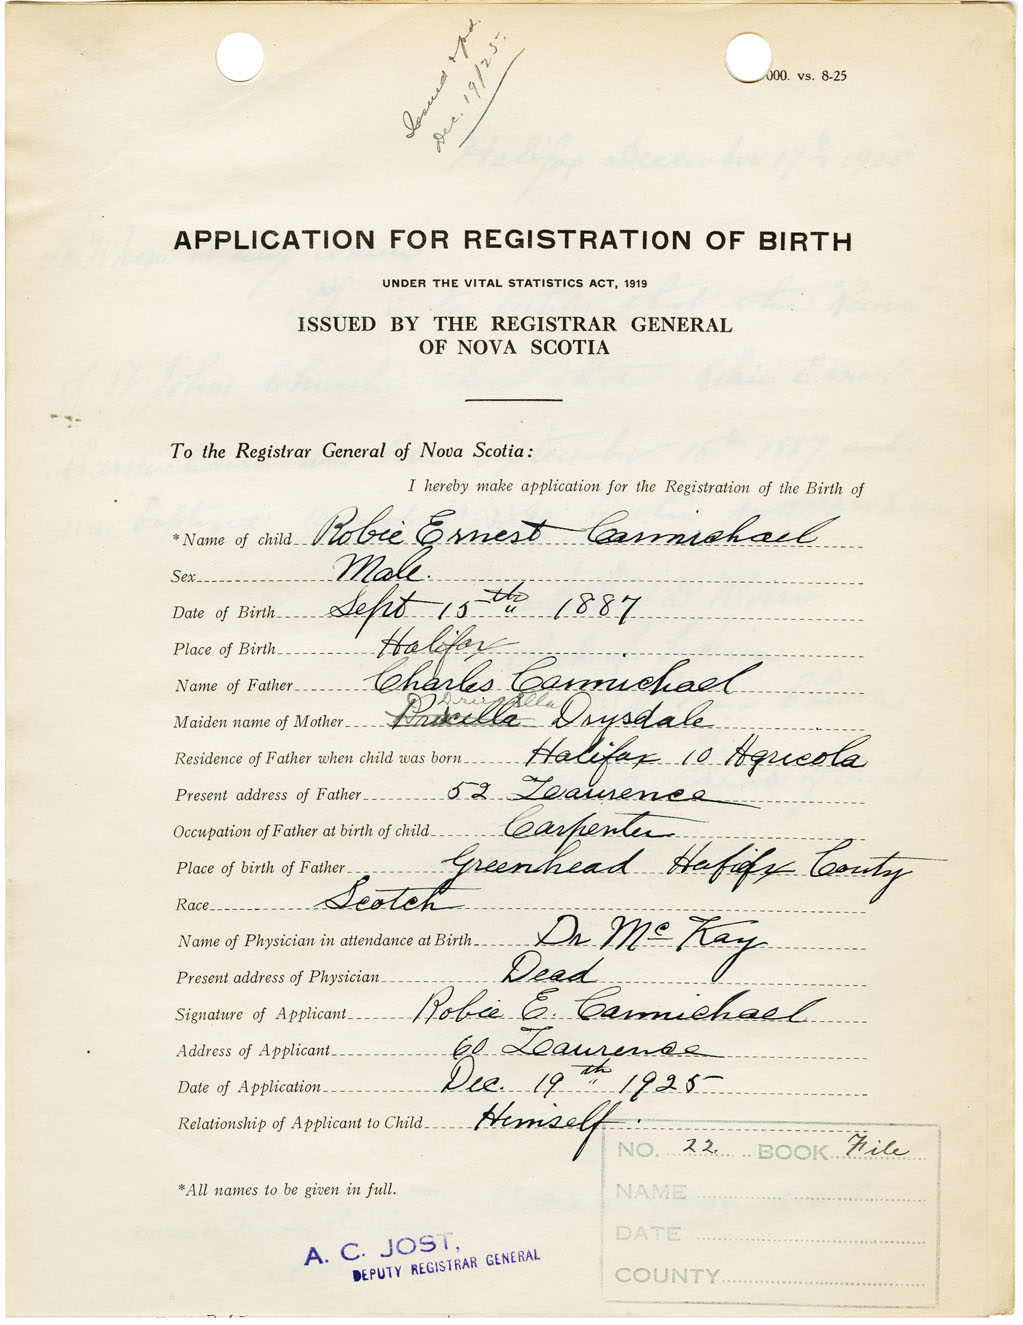 Issued & pd.
Dec. 19/25.
000. vs. 8-25
APPLICATION FOR REGISTRATION OF BIRTH
UNDER THE VITAL STATISTICS ACT, 1919
ISSUED BY THE REGISTRAR GENERAL
OF NOVA SCOTIA
To the Registrar General of Nova Scotia:
I hereby make application for the Registration of the Birth of
*Name of child Robie Ernest Carmichael
Sex Male.
Date of Birth Sept 15th 1887
Place of Birth Halifax
Name of Father Charles Carmichael
Drucilla
Maiden name of Mother Pricilla Drysdale
Residence of Father when child was born Halifax 10 Agricola
Present address of Father 52 Laurence
Occupation of Father at birth of child Carpenter
Place of birth of Father Greenhead Halifx Conty
Race Scotch
Name of Physician in attendance at Birth Dr McKay
Present address of Physician Dead
Signature of Applicant Robie E. Carmichael
Address of Applicant 60 Laurence
Date of Application Dec. 19th 1925
Relationship of Applicant to Child Himself.
NO. 22. BOOK File
NAME
DATE
COUNTY
*All names to be given in full.
A. C. JOST,
DEPUTY REGISTRAR GENERAL